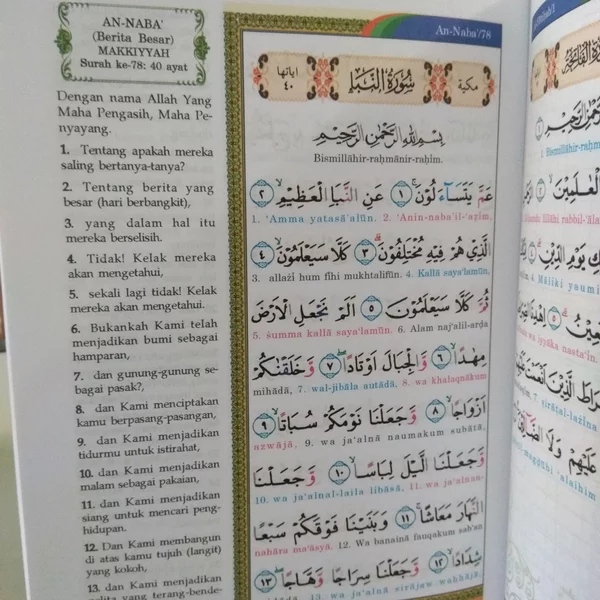 AN-NABA'
(Berita Besar)
MAKKIYYAH
Surah ke-78: 40 ayat
Dengan nama Allah Yang
Maha Pengasih, Maha Pe-
nyayang.
1. Tentang apakah mereka
saling bertanya-tanya?
2. Tentang berita yang
besar (hari berbangkit),
3. yang dalam hal itu
mereka berselisih.
4. Tidak! Kelak mereka
akan mengetahui,
5. sekali lagi tidak! Kelak
mereka akan mengetahui.
6. Bukankah Kami telah
menjadikan bumi sebagai
hamparan,
7. dan gunung-gunung se-
bagai pasak?,
8. dan Kami menciptakan
kamu berpasang-pasangan,
9. dan Kami menjadikan
tidurmu untuk istirahat,
10. dan Kami menjadikan
malam sebagai pakaian,
11. dan Kami menjadikan
siang untuk mencari peng-
hidupan.
12. Dan Kami membangun
di atas kamu tujuh (langit)
yang kokoh,
13. dan Kami menjadikan
pelita yang terang-bende-
An-Naba'/78
مكية سُوْرَةُ النَّبَإِ اياتها ٤٠
بِسْمِ اللهِ الرَّحْمٰنِ الرَّحِيْمِ
Bismillāhir-raḥmānir-raḥīm.
عَمَّ يَتَسَاۤءَلُوْنَۚ ١ عَنِ النَّبَاِ الْعَظِيْمِۙ ٢
1. 'Amma yatasā'alūn. 2. 'Anin-naba'il-'aẓīm,
الَّذِيْ هُمْ فِيْهِ مُخْتَلِفُوْنَۗ ٣ كَلَّا سَيَعْلَمُوْنَۙ ٤
3. allażī hum fīhi mukhtalifūn. 4. Kallā saya'lamūn,
ثُمَّ كَلَّا سَيَعْلَمُوْنَ ٥ اَلَمْ نَجْعَلِ الْاَرْضَ
5. ṡumma kallā saya'lamūn. 6. Alam naj'alil-arḍa
مِهٰدًاۙ ٦ وَّالْجِبَالَ اَوْتَادًاۖ ٧ وَّخَلَقْنٰكُمْ
mihādā, 7. wal-jibāla autādā, 8. wa khalaqnākum
اَزْوَاجًاۙ ٨ وَّجَعَلْنَا نَوْمَكُمْ سُبَاتًاۙ ٩
azwājā, 9. wa ja'alnā naumakum subātā,
وَّجَعَلْنَا الَّيْلَ لِبَاسًاۙ ١٠ وَّجَعَلْنَا
10. wa ja'alnal-laila libāsā, 11. wa ja'alnan-
النَّهَارَ مَعَاشًاۚ ١١ وَبَنَيْنَا فَوْقَكُمْ سَبْعًا
nahāra ma'āsya. 12. Wa banainā fauqakum sab'an
شِدَادًاۙ ١٢ وَّجَعَلْنَا سِرَاجًا وَّهَّاجًاۖ ١٣
syidādā, 13. wa ja'alnā sirājaw wahhājā,